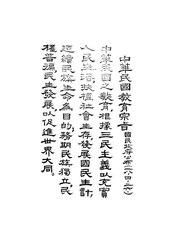 中華民國教育宗旨 國民政府
中華民國之教育根據三民主義以充實
人民生活,扶植社會生存,發展國民生計,
延續民族生命為目的;務期民族獨立,民
權普遍,民生發展,以促進世界大同。